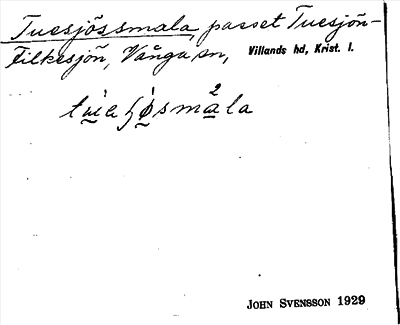 Tuesjössmala, passet Tuesjön-
Filkesjön, Vånga sn, Villands hd, Krist. l.
2
JOHN SVENSSON 1929